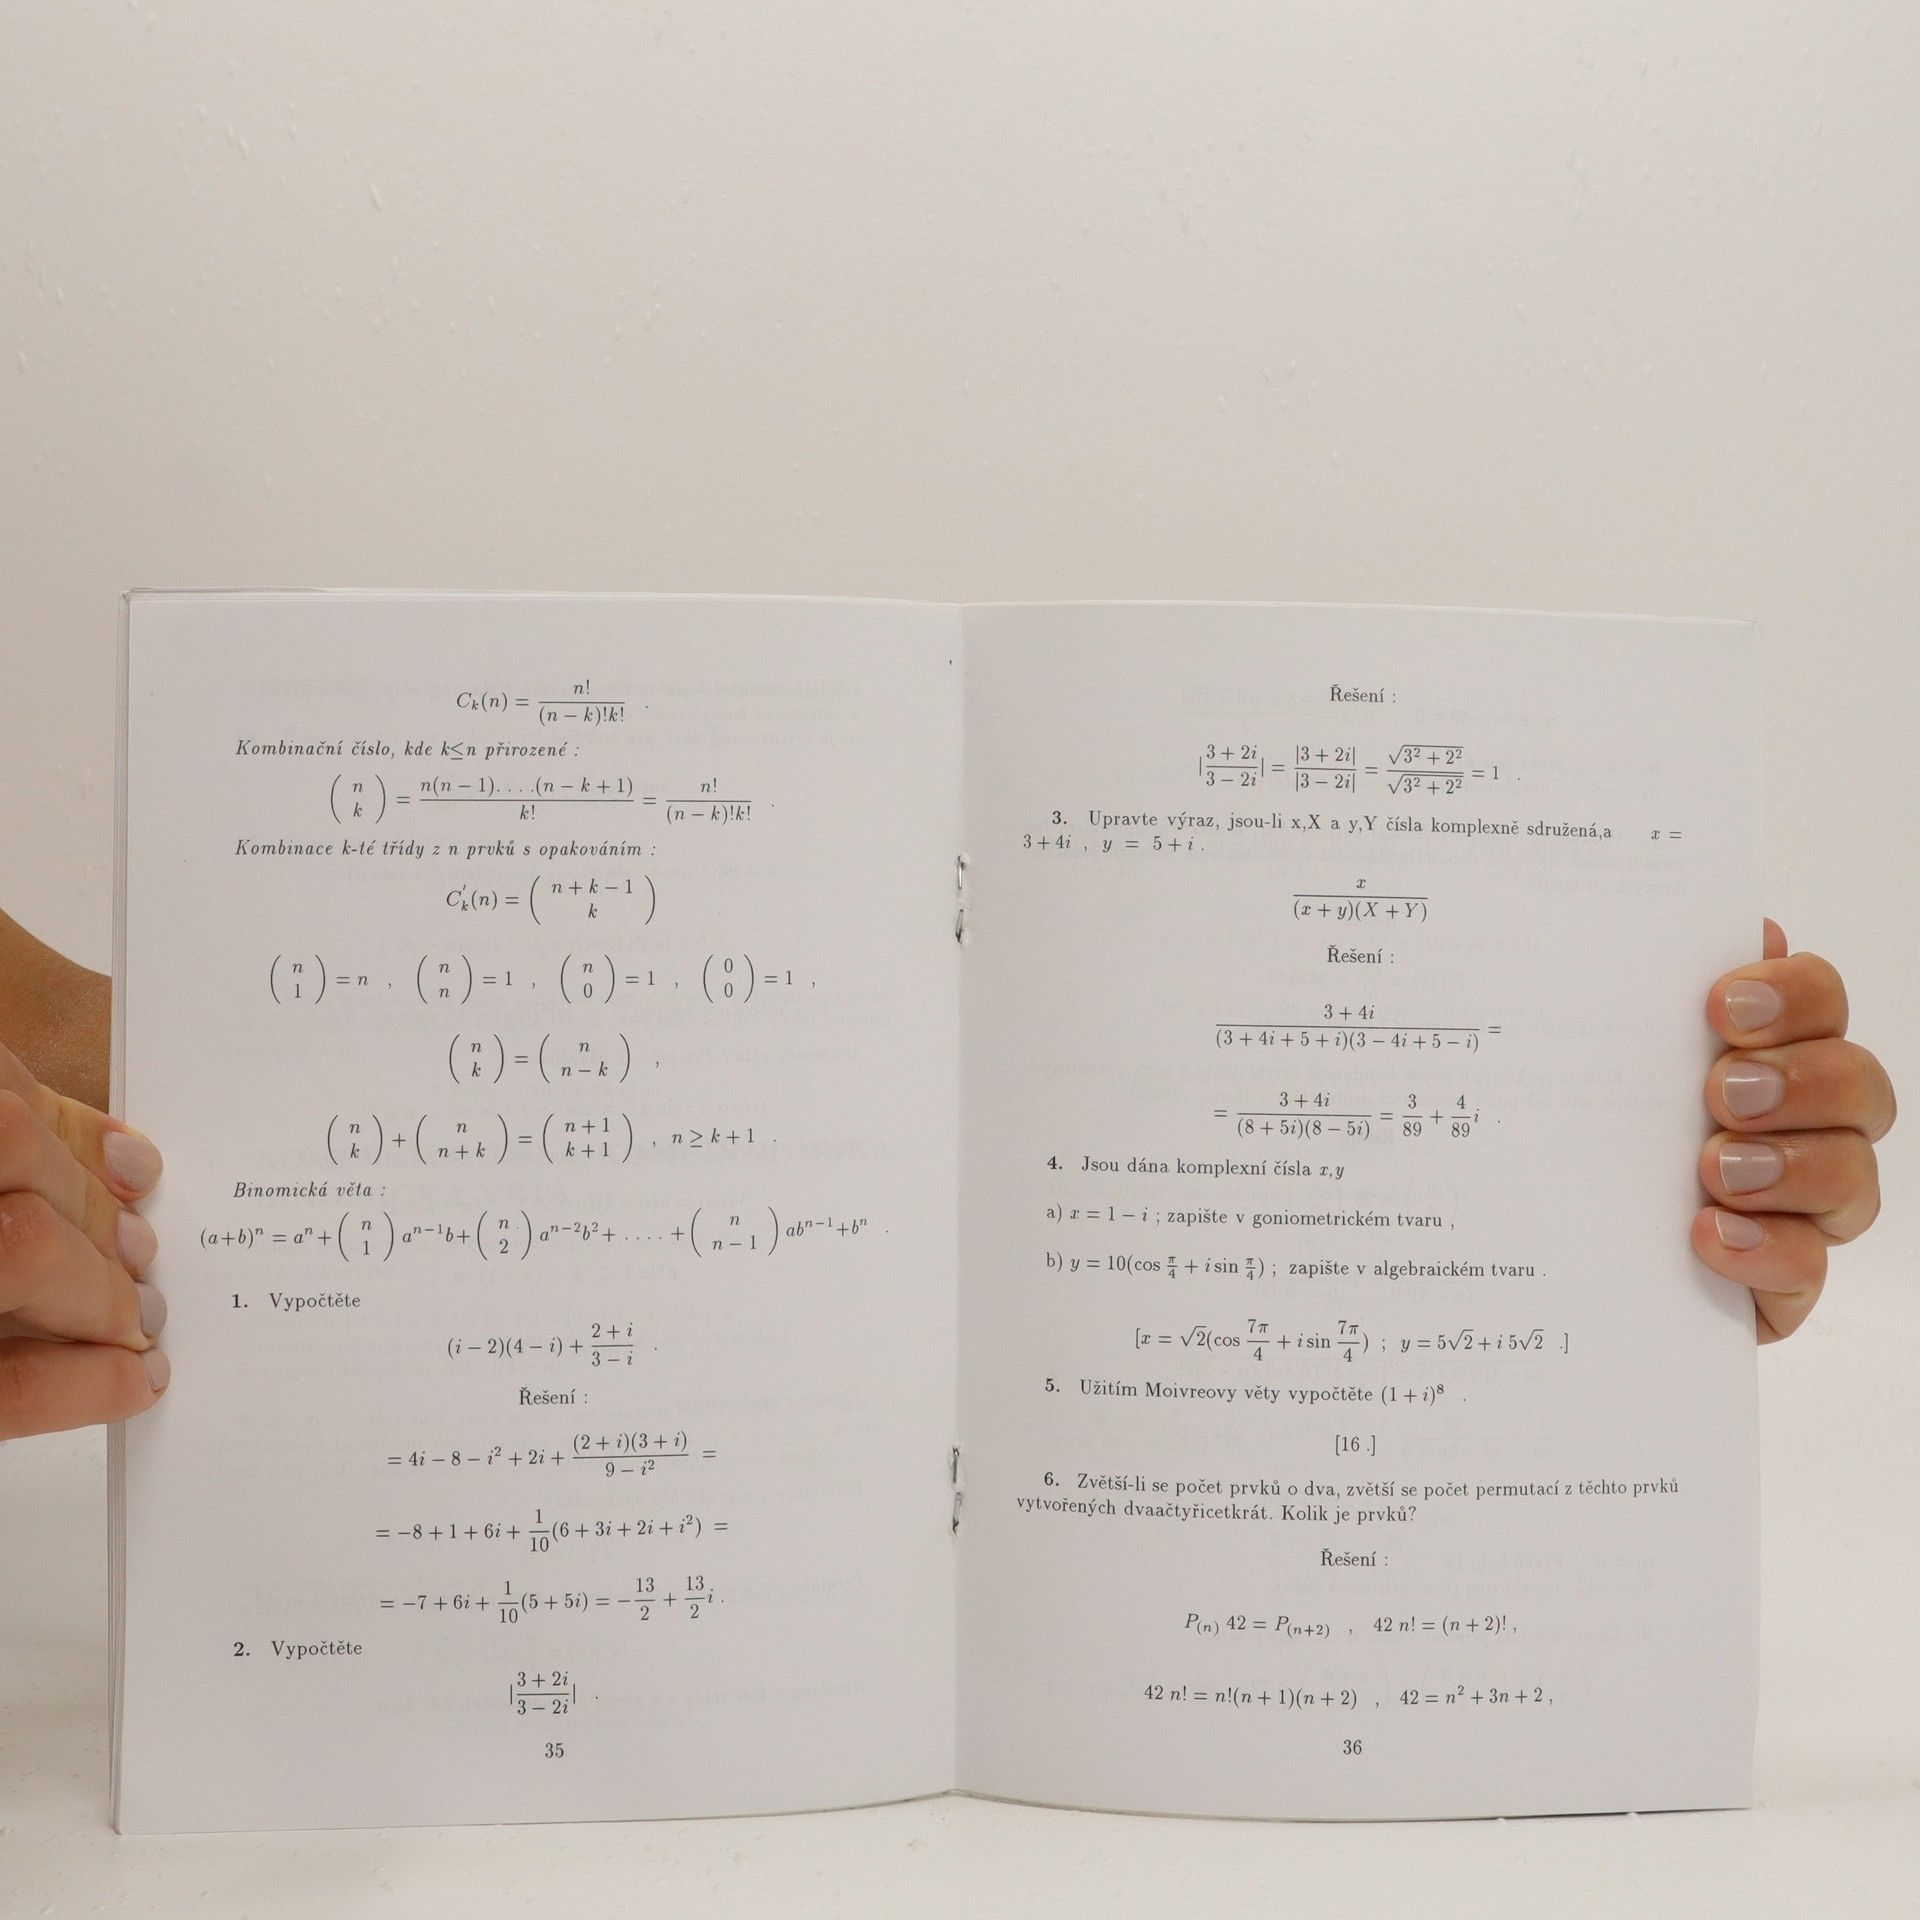 C_k(n) = n! / ((n − k)!k!) .
Kombinační číslo, kde k≤n přirozené :
( n k ) = n(n − 1). . . .(n − k + 1) / k! = n! / ((n − k)!k!) .
Kombinace k-té třídy z n prvků s opakováním :
C'_k(n) = ( n + k − 1 k )
( n 1 ) = n , ( n n ) = 1 , ( n 0 ) = 1 , ( 0 0 ) = 1 ,
( n k ) = ( n n − k ) ,
( n k ) + ( n n + k ) = ( n + 1 k + 1 ) , n ≥ k + 1 .
Binomická věta :
(a+b)^n = a^n + ( n 1 ) a^{n−1}b + ( n 2 ) a^{n−2}b² + . . . . + ( n n − 1 ) ab^{n−1} + b^n .
1. Vypočtěte
(i − 2)(4 − i) + (2 + i)/(3 − i) .
Řešení :
= 4i − 8 − i² + 2i + (2 + i)(3 + i) / (9 − i²) =
= −8 + 1 + 6i + 1/10 (6 + 3i + 2i + i²) =
= −7 + 6i + 1/10 (5 + 5i) = − 13/2 + 13/2 i .
2. Vypočtěte
| (3 + 2i)/(3 − 2i) | .
35
Řešení :
| (3 + 2i)/(3 − 2i) | = |3 + 2i| / |3 − 2i| = √(3² + 2²) / √(3² + 2²) = 1 .
3. Upravte výraz, jsou-li x,X a y,Y čísla komplexně sdružená,a x =
3 + 4i , y = 5 + i .
x / ((x + y)(X + Y))
Řešení :
(3 + 4i) / ((3 + 4i + 5 + i)(3 − 4i + 5 − i)) =
= (3 + 4i) / ((8 + 5i)(8 − 5i)) = 3/89 + 4/89 i .
4. Jsou dána komplexní čísla x,y
a) x = 1 − i ; zapište v goniometrickém tvaru ,
b) y = 10(cos π/4 + i sin π/4) ; zapište v algebraickém tvaru .
[x = √2(cos 7π/4 + i sin 7π/4) ; y = 5√2 + i 5√2 .]
5. Užitím Moivreovy věty vypočtěte (1 + i)⁸ .
[16 .]
6. Zvětší-li se počet prvků o dva, zvětší se počet permutací z těchto prvků
vytvořených dvaačtyřicetkrát. Kolik je prvků?
Řešení :
P_(n) 42 = P_(n+2) , 42 n! = (n + 2)! ,
42 n! = n!(n + 1)(n + 2) , 42 = n² + 3n + 2 ,
36